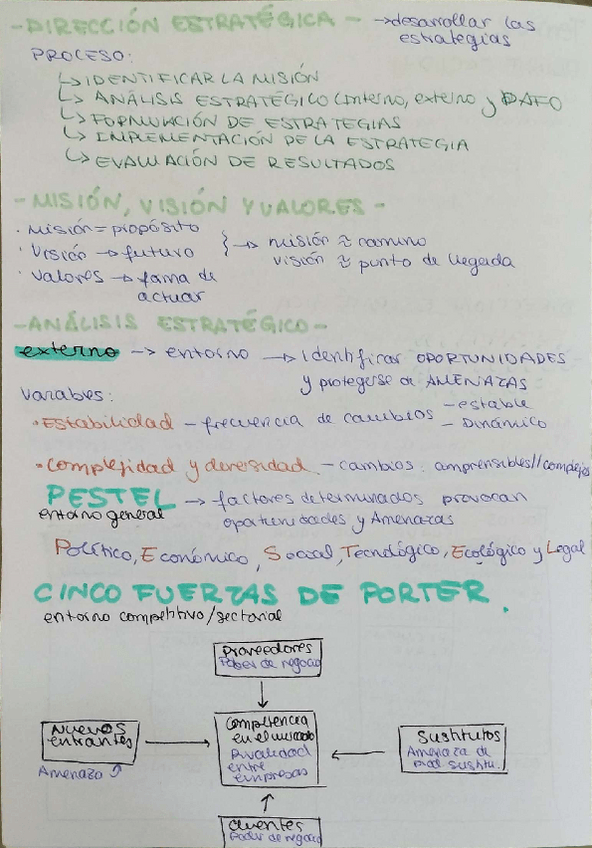 - DIRECCIÓN ESTRATÉGICA - → desarrollar las
estrategias
PROCESO:
↳ IDENTIFICAR LA MISIÓN
↳ ANÁLISIS ESTRATÉGICO (interno, externo y DAFO
↳ FORMULACIÓN DE ESTRATEGIAS
↳ IMPLEMENTACIÓN DE LA ESTRATEGIA
↳ EVALUACIÓN DE RESULTADOS
- MISIÓN, VISIÓN Y VALORES -
· Misión = propósito
· Visión → futuro } → misión ≈ camino
visión ≈ punto de llegada
· Valores → forma de
actuar
- ANÁLISIS ESTRATÉGICO -
externo → entorno → Identificar OPORTUNIDADES
y protegerse de AMENAZAS
Variables:
· Estabilidad - frecuencia de cambios - estable
- Dinámico
· Complejidad y diversidad - cambios: comprensibles//complejos
PESTEL → factores determinados provocan
entorno general
oportunidades y Amenazas
Político, Económico, Social, Tecnológico, Ecológico y Legal
CINCO FUERZAS DE PORTER.
entorno competitivo/sectorial
Proveedores
Poder de negocio
Nuevos
entrantes
Amenaza
Competencia
en el mercado
Rivalidad
entre
empresas
Sustitutos
Amenaza de
prod. sustitu.
Clientes
Poder de negocio